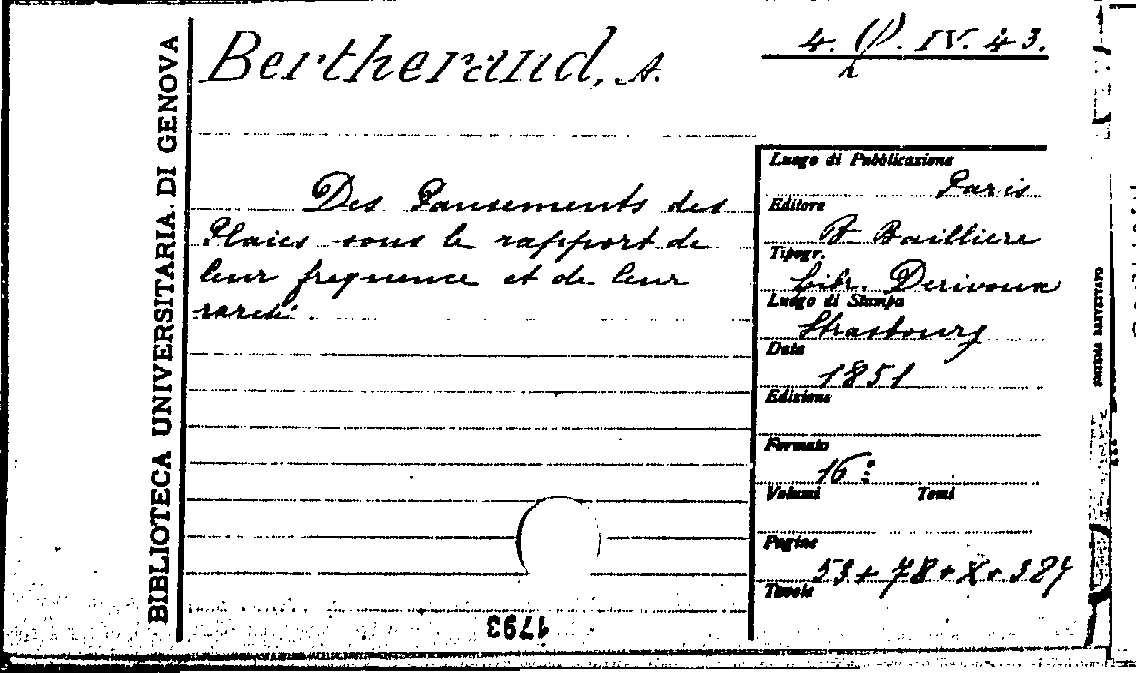 BIBLIOTECA UNIVERSITARIA. DI GENOVA
Bertherand, A.
4. IV. 43.
Des Pansements des
Plaies sous le rapport de
leur frequence et de leur
rareté.
Luogo di Pubblicazione
Paris
Editore
Bailliere
Tipogr.
Libr. Derivoux
Luogo di Stampa
Strasbourg
Data
1851
Edizione
Formato
16:
Volumi Tomi
Pagine
53 + 78 + X + 387
Tavole
1793